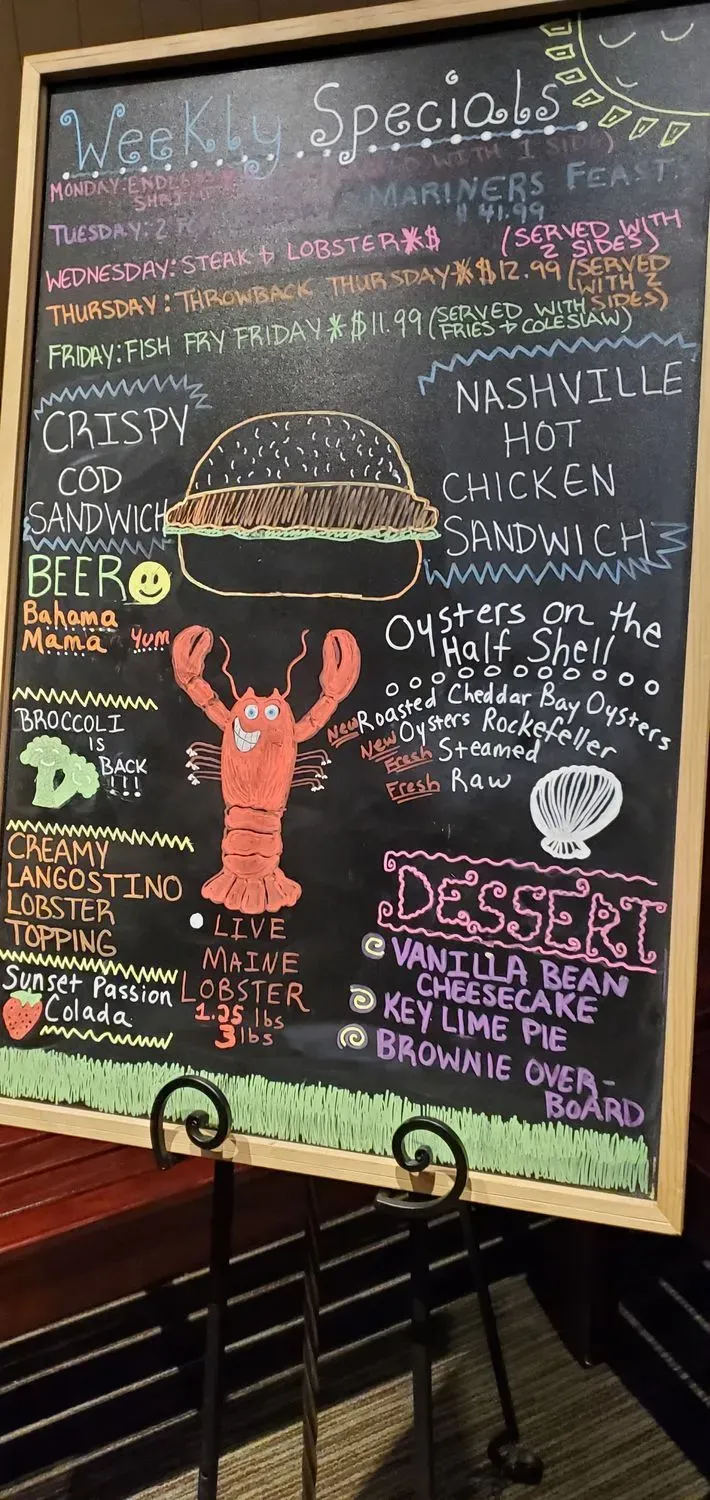 Weekly Specials
MONDAY: ENDLESS
SHRI
WITH 1 SIDE)
MARINERS FEAST
$41.99
TUESDAY: 2 F
WEDNESDAY: STEAK + LOBSTER*$ (SERVED WITH
2 SIDES)
THURSDAY: THROWBACK THURSDAY*$12.99 (SERVED
WITH 2
SIDES)
FRIDAY: FISH FRY FRIDAY*$11.99 (SERVED WITH
FRIES + COLESLAW)
CRISPY
COD
SANDWICH
NASHVILLE
HOT
CHICKEN
SANDWICH
BEER
Bahama
Mama Yum
BROCCOLI
IS
BACK
!!!
CREAMY
LANGOSTINO
LOBSTER
TOPPING
Sunset Passion
Colada
LIVE
MAINE
LOBSTER
1.25 lbs
3 lbs
Oysters on the
Half Shell
New Roasted Cheddar Bay Oysters
New Oysters Rockefeller
Fresh Steamed
Fresh Raw
DESSERT
VANILLA BEAN
CHEESECAKE
KEY LIME PIE
BROWNIE OVER-
BOARD